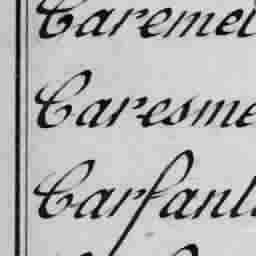 Caremel
Caresme
Carfant